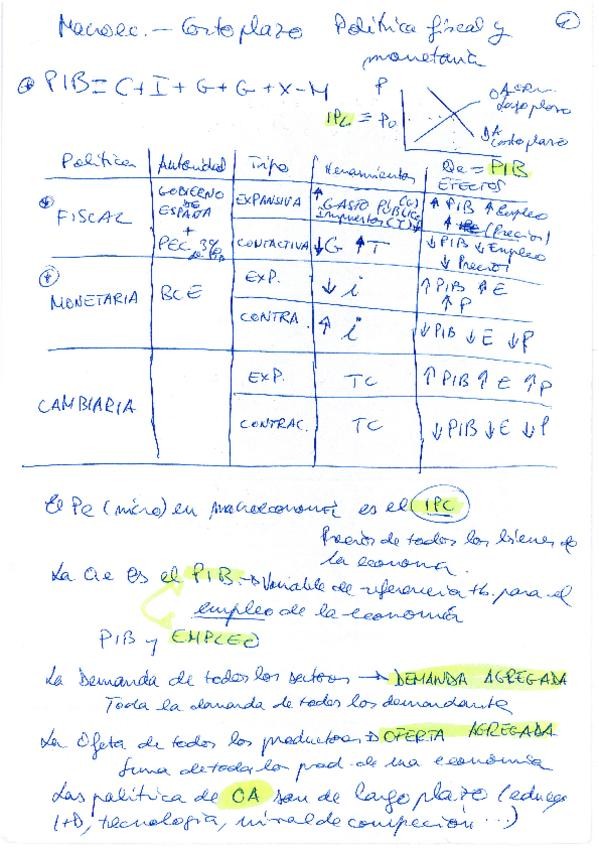 Macroec. - Corto plazo Política fiscal y monetaria
1
* PIB = C + I + G + G + X - M
P
IPC = Pe
OA
largo plazo
DA
corto plazo
Política Autoridad Tipo Herramientas Qe = PIB
EFECTOS
* FISCAL
GOBIERNO
DE
ESPAÑA
+
PEC 3%
EXPANSIVA ↑ GASTO PÚBLICO (G) Impuestos (T) ↓ ↑ PIB ↑ Empleo ↑ (Precios)
CONTACTIVA ↓G ↑T ↓ PIB ↓ Empleo ↓ Precios
* MONETARIA BCE EXP. ↓ i ↑ PIB ↑ E ↑ P
CONTRA. ↑ i ↓ PIB ↓ E ↓ P
CAMBIARIA EXP. TC ↑ PIB ↑ E ↑ P
CONTRAC. TC ↓ PIB ↓ E ↓ P
El Pe (micro) en macroeconomía es el IPC
Precios de todos los bienes de
la economía.
La Qe es el PIB → Variable de referencia tb. para el
empleo de la economía
PIB y EMPLEO
La Demanda de todos los sectores → DEMANDA AGREGADA
Toda la demanda de todos los demandantes
La Oferta de todos los productores → OFERTA AGREGADA
Suma de toda la prod. de una economía
Las política de OA son de largo plazo (educac
I+D, tecnología, nivel de competición ...)